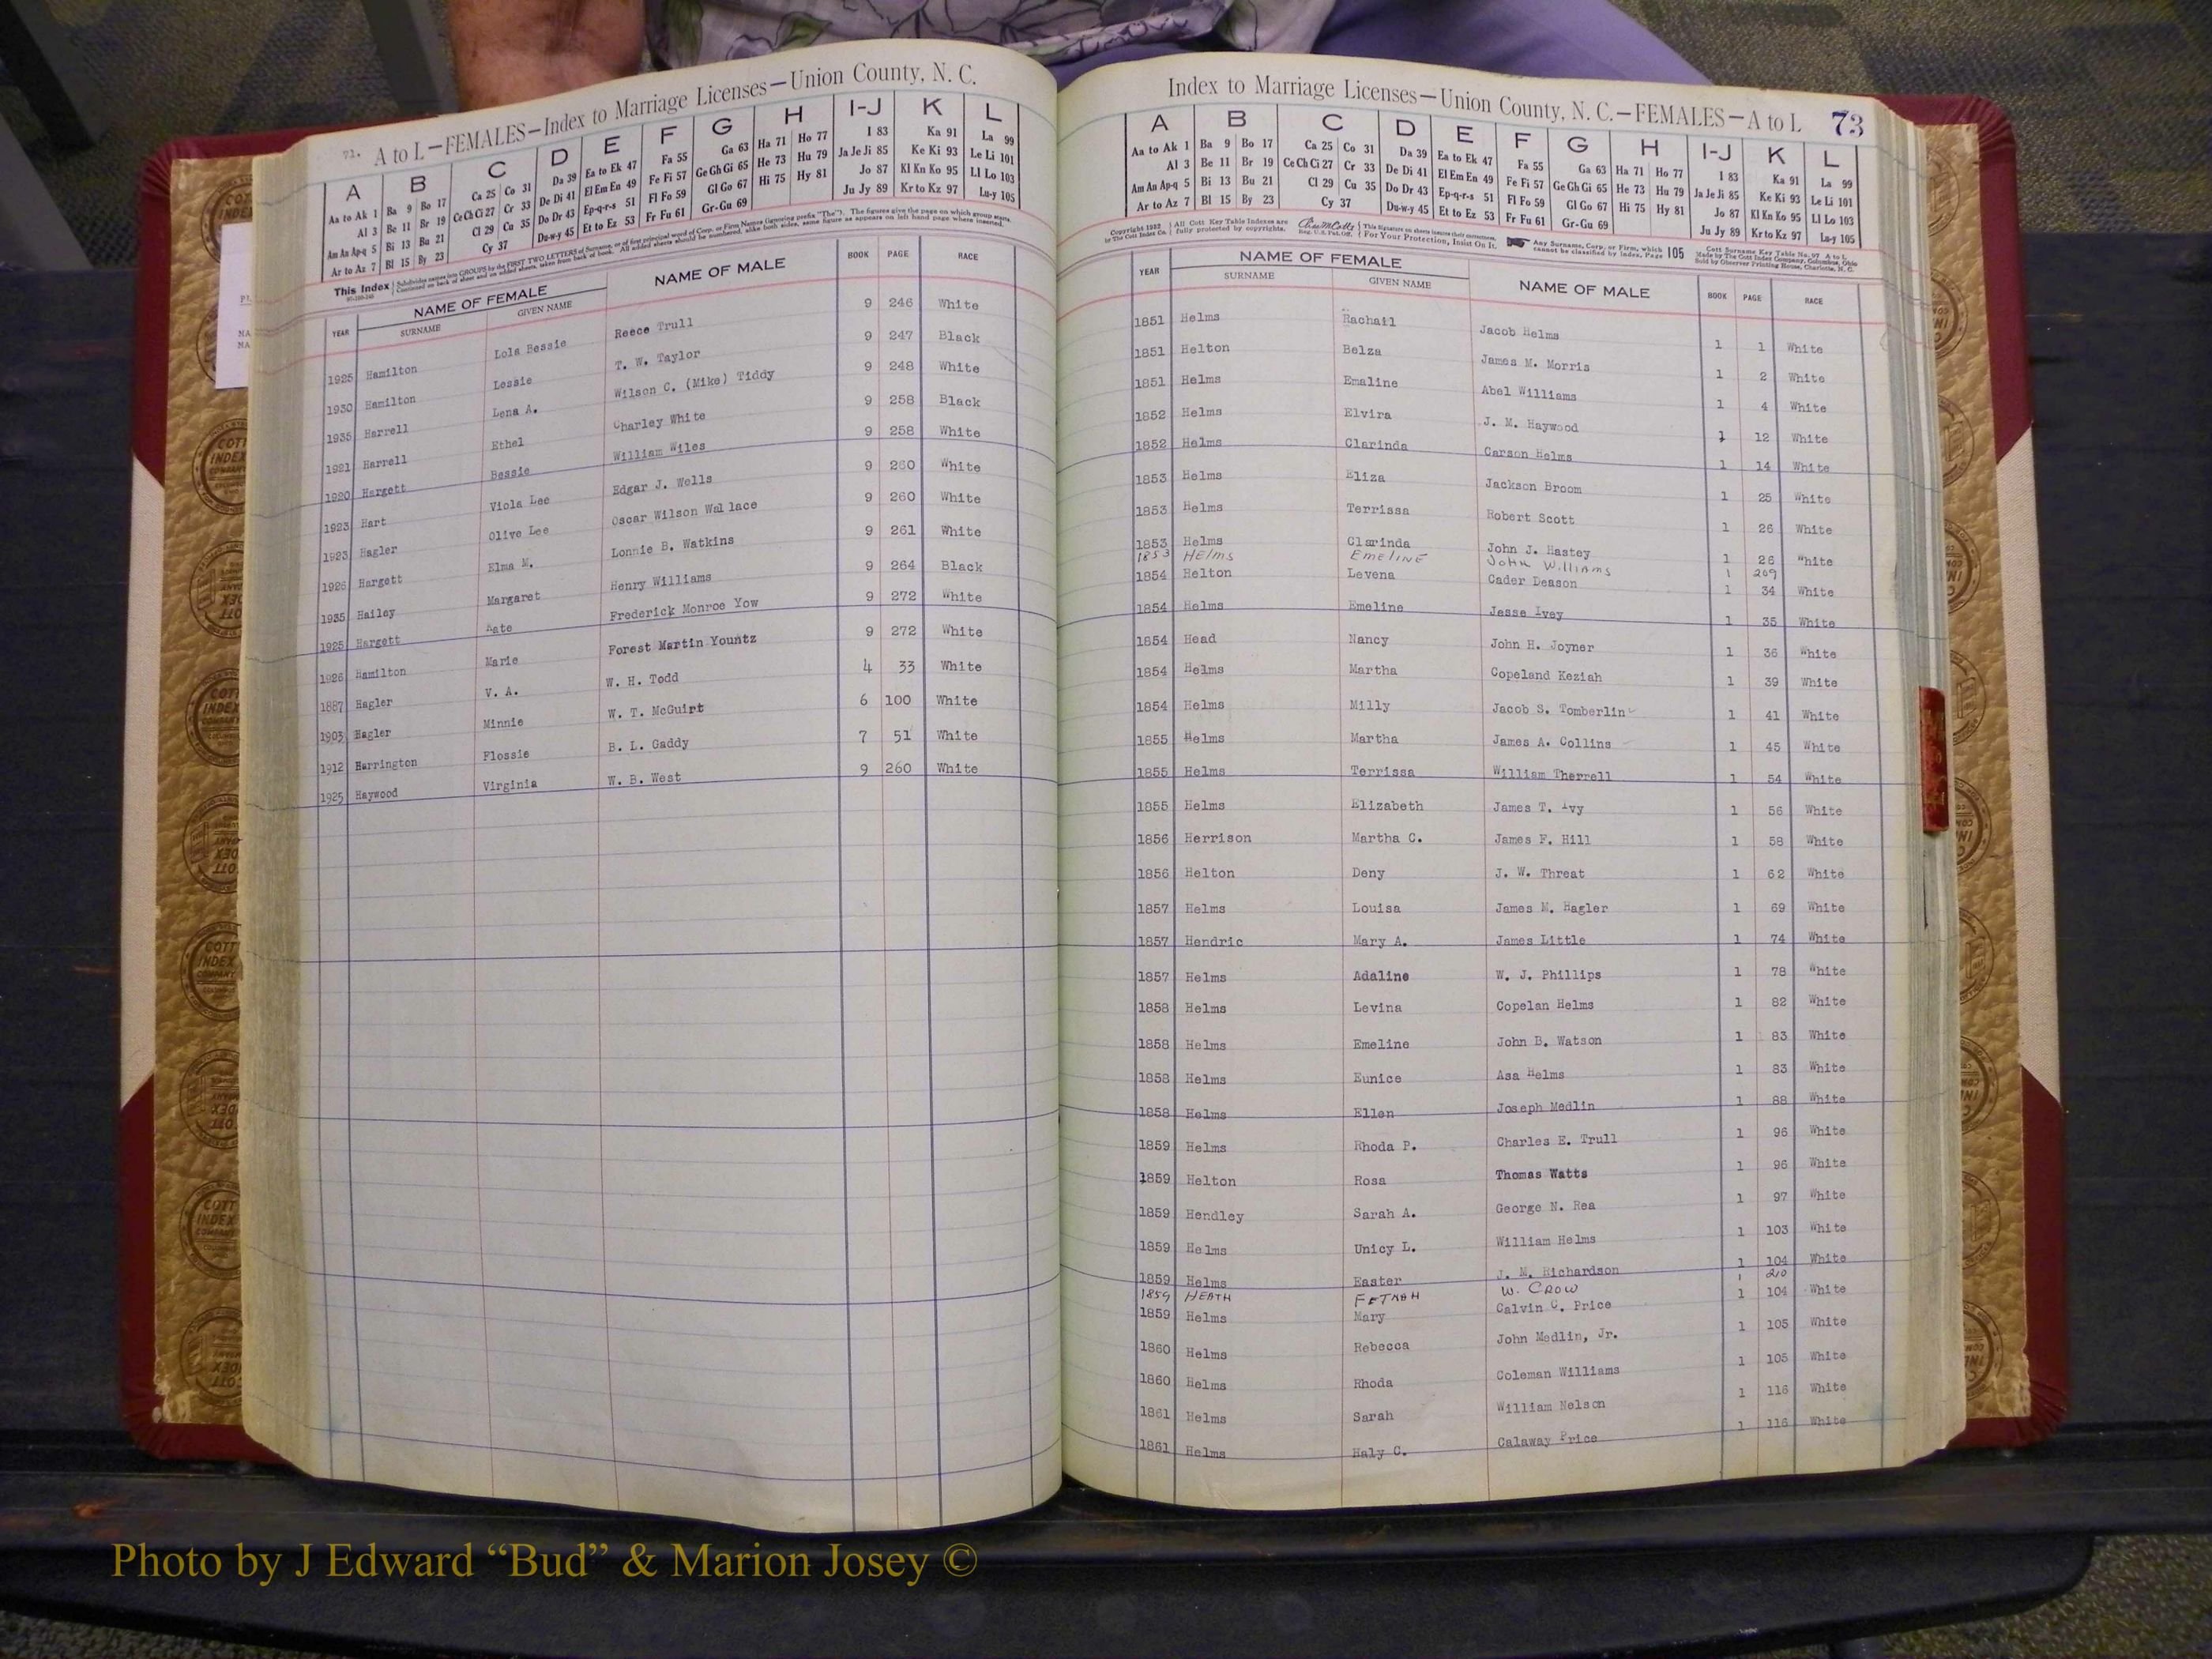 71. A to L—FEMALES—Index to Marriage Licenses—Union County, N. C.
A B C D E F G H I-J K L
Aa to Ak 1 Ba 9 Bo 17 Ca 25 Co 31 Da 39 Ea to Ek 47 Fa 55 Ga 63 Ha 71 Ho 77 I 83 Ka 91 La 99
Al 3 Be 11 Br 19 Ce Ch Ci 27 Cr 33 De Di 41 El Em En 49 Fe Fi 57 Ge Gh Gi 65 He 73 Hu 79 Ja Je Ji 85 Ke Ki 93 Le Li 101
Am An Ap-q 5 Bi 13 Bu 21 Cl 29 Cu 35 Do Dr 43 Ep-q-r-s 51 Fl Fo 59 Gl Go 67 Hi 75 Hy 81 Jo 87 Kl Kn Ko 95 Ll Lo 103
Ar to Az 7 Bl 15 By 23 Cy 37 Du-w-y 45 Et to Ez 53 Fr Fu 61 Gr-Gu 69 Ju Jy 89 Kr to Kz 97 Lu-y 105
This Index Subdivides names into GROUPS by the FIRST TWO LETTERS of Surname, or of first principal word of Corp. or Firm Names (ignoring prefix "The"). The figures give the page on which group starts.
Continued on back of sheet and on added sheets, taken from back of book. All added sheets should be numbered, alike both sides, same figure as appears on left hand page where inserted.
YEAR NAME OF FEMALE NAME OF MALE BOOK PAGE RACE
SURNAME GIVEN NAME
1925 Hamilton Lola Bessie Reece Trull 9 246 White
1930 Hamilton Lessie T. W. Taylor 9 247 Black
1935 Harrell Lena A. Wilson C. (Mike) Tiddy 9 248 White
1921 Harrell Ethel Charley White 9 258 Black
1920 Hargett Bessie William Wiles 9 258 White
1923 Hart Viola Lee Edgar J. Wells 9 260 White
1923 Hagler Olive Lee Oscar Wilson Wallace 9 260 White
1926 Hargett Elma M. Lonnie B. Watkins 9 261 White
1935 Hailey Margaret Henry Williams 9 264 Black
1925 Hargett Kate Frederick Monroe Yow 9 272 White
1926 Hamilton Marie Forest Martin Yountz 9 272 White
1887 Hagler V. A. W. H. Todd 4 33 White
1903 Hagler Minnie W. T. McGuirt 6 100 White
1912 Harrington Flossie B. L. Gaddy 7 51 White
1925 Haywood Virginia W. B. West 9 260 White
Index to Marriage Licenses—Union County, N. C.—FEMALES—A to L 73
A B C D E F G H I-J K L
Aa to Ak 1 Ba 9 Bo 17 Ca 25 Co 31 Da 39 Ea to Ek 47 Fa 55 Ga 63 Ha 71 Ho 77 I 83 Ka 91 La 99
Al 3 Be 11 Br 19 Ce Ch Ci 27 Cr 33 De Di 41 El Em En 49 Fe Fi 57 Ge Gh Gi 65 He 73 Hu 79 Ja Je Ji 85 Ke Ki 93 Le Li 101
Am An Ap-q 5 Bi 13 Bu 21 Cl 29 Cu 35 Do Dr 43 Ep-q-r-s 51 Fl Fo 59 Gl Go 67 Hi 75 Hy 81 Jo 87 Kl Kn Ko 95 Ll Lo 103
Ar to Az 7 Bl 15 By 23 Cy 37 Du-w-y 45 Et to Ez 53 Fr Fu 61 Gr-Gu 69 Ju Jy 89 Kr to Kz 97 Lu-y 105
Copyright 1912 by The Cott Index Co. All Cott Key Table Indexes are fully protected by copyrights. This Signature on sheets insures their correctness. For Your Protection, Insist On It. Any Surname, Corp. or Firm, which cannot be classified by Index, Page 105 Cott Surname Key Table No. 97 A to L
Made by The Cott Index Company, Columbus, Ohio
Sold by Observer Printing House, Charlotte, N. C.
YEAR NAME OF FEMALE NAME OF MALE BOOK PAGE RACE
SURNAME GIVEN NAME
1851 Helms Rachail Jacob Helms 1 1 White
1851 Helton Belza James M. Morris 1 2 White
1851 Helms Emaline Abel Williams 1 4 White
1852 Helms Elvira J. M. Haywood 1 12 White
1852 Helms Clarinda Carson Helms 1 14 White
1853 Helms Eliza Jackson Broom 1 25 White
1853 Helms Terrissa Robert Scott 1 26 White
1853 Helms Clarinda John J. Hastey 1 26 White
1853 HElms EmeliNE JohN Williams 1 209
1854 Helton Levena Cader Deason 1 34 White
1854 Helms Emeline Jesse Ivey 1 35 White
1854 Head Nancy John H. Joyner 1 36 White
1854 Helms Martha Copeland Keziah 1 39 White
1854 Helms Milly Jacob S. Tomberlin 1 41 White
1855 Helms Martha James A. Collins 1 45 White
1855 Helms Terrissa William Therrell 1 54 White
1855 Helms Elizabeth James T. Ivy 1 56 White
1856 Herrison Martha C. James F. Hill 1 58 White
1856 Helton Deny J. W. Threat 1 62 White
1857 Helms Louisa James M. Hagler 1 69 White
1857 Hendric Mary A. James Little 1 74 White
1857 Helms Adaline W. J. Phillips 1 78 White
1858 Helms Levina Copelan Helms 1 82 White
1858 Helms Emeline John B. Watson 1 83 White
1858 Helms Eunice Asa Helms 1 83 White
1858 Helms Ellen Joseph Medlin 1 88 White
1859 Helms Rhoda P. Charles E. Trull 1 96 White
1859 Helton Rosa Thomas Watts 1 96 White
1859 Hendley Sarah A. George N. Rea 1 97 White
1859 Helms Unicy L. William Helms 1 103 White
1859 Helms Easter J. M. Richardson 1 104 White
1859 HEATH FETNAH W. CROW 1 210
1859 Helms Mary Calvin C. Price 1 104 White
1860 Helms Rebecca John Medlin, Jr. 1 105 White
1860 Helms Rhoda Coleman Williams 1 105 White
1861 Helms Sarah William Nelson 1 116 White
1861 Helms Haly C. Calaway Price 1 116 White
Photo by J Edward “Bud” & Marion Josey ©